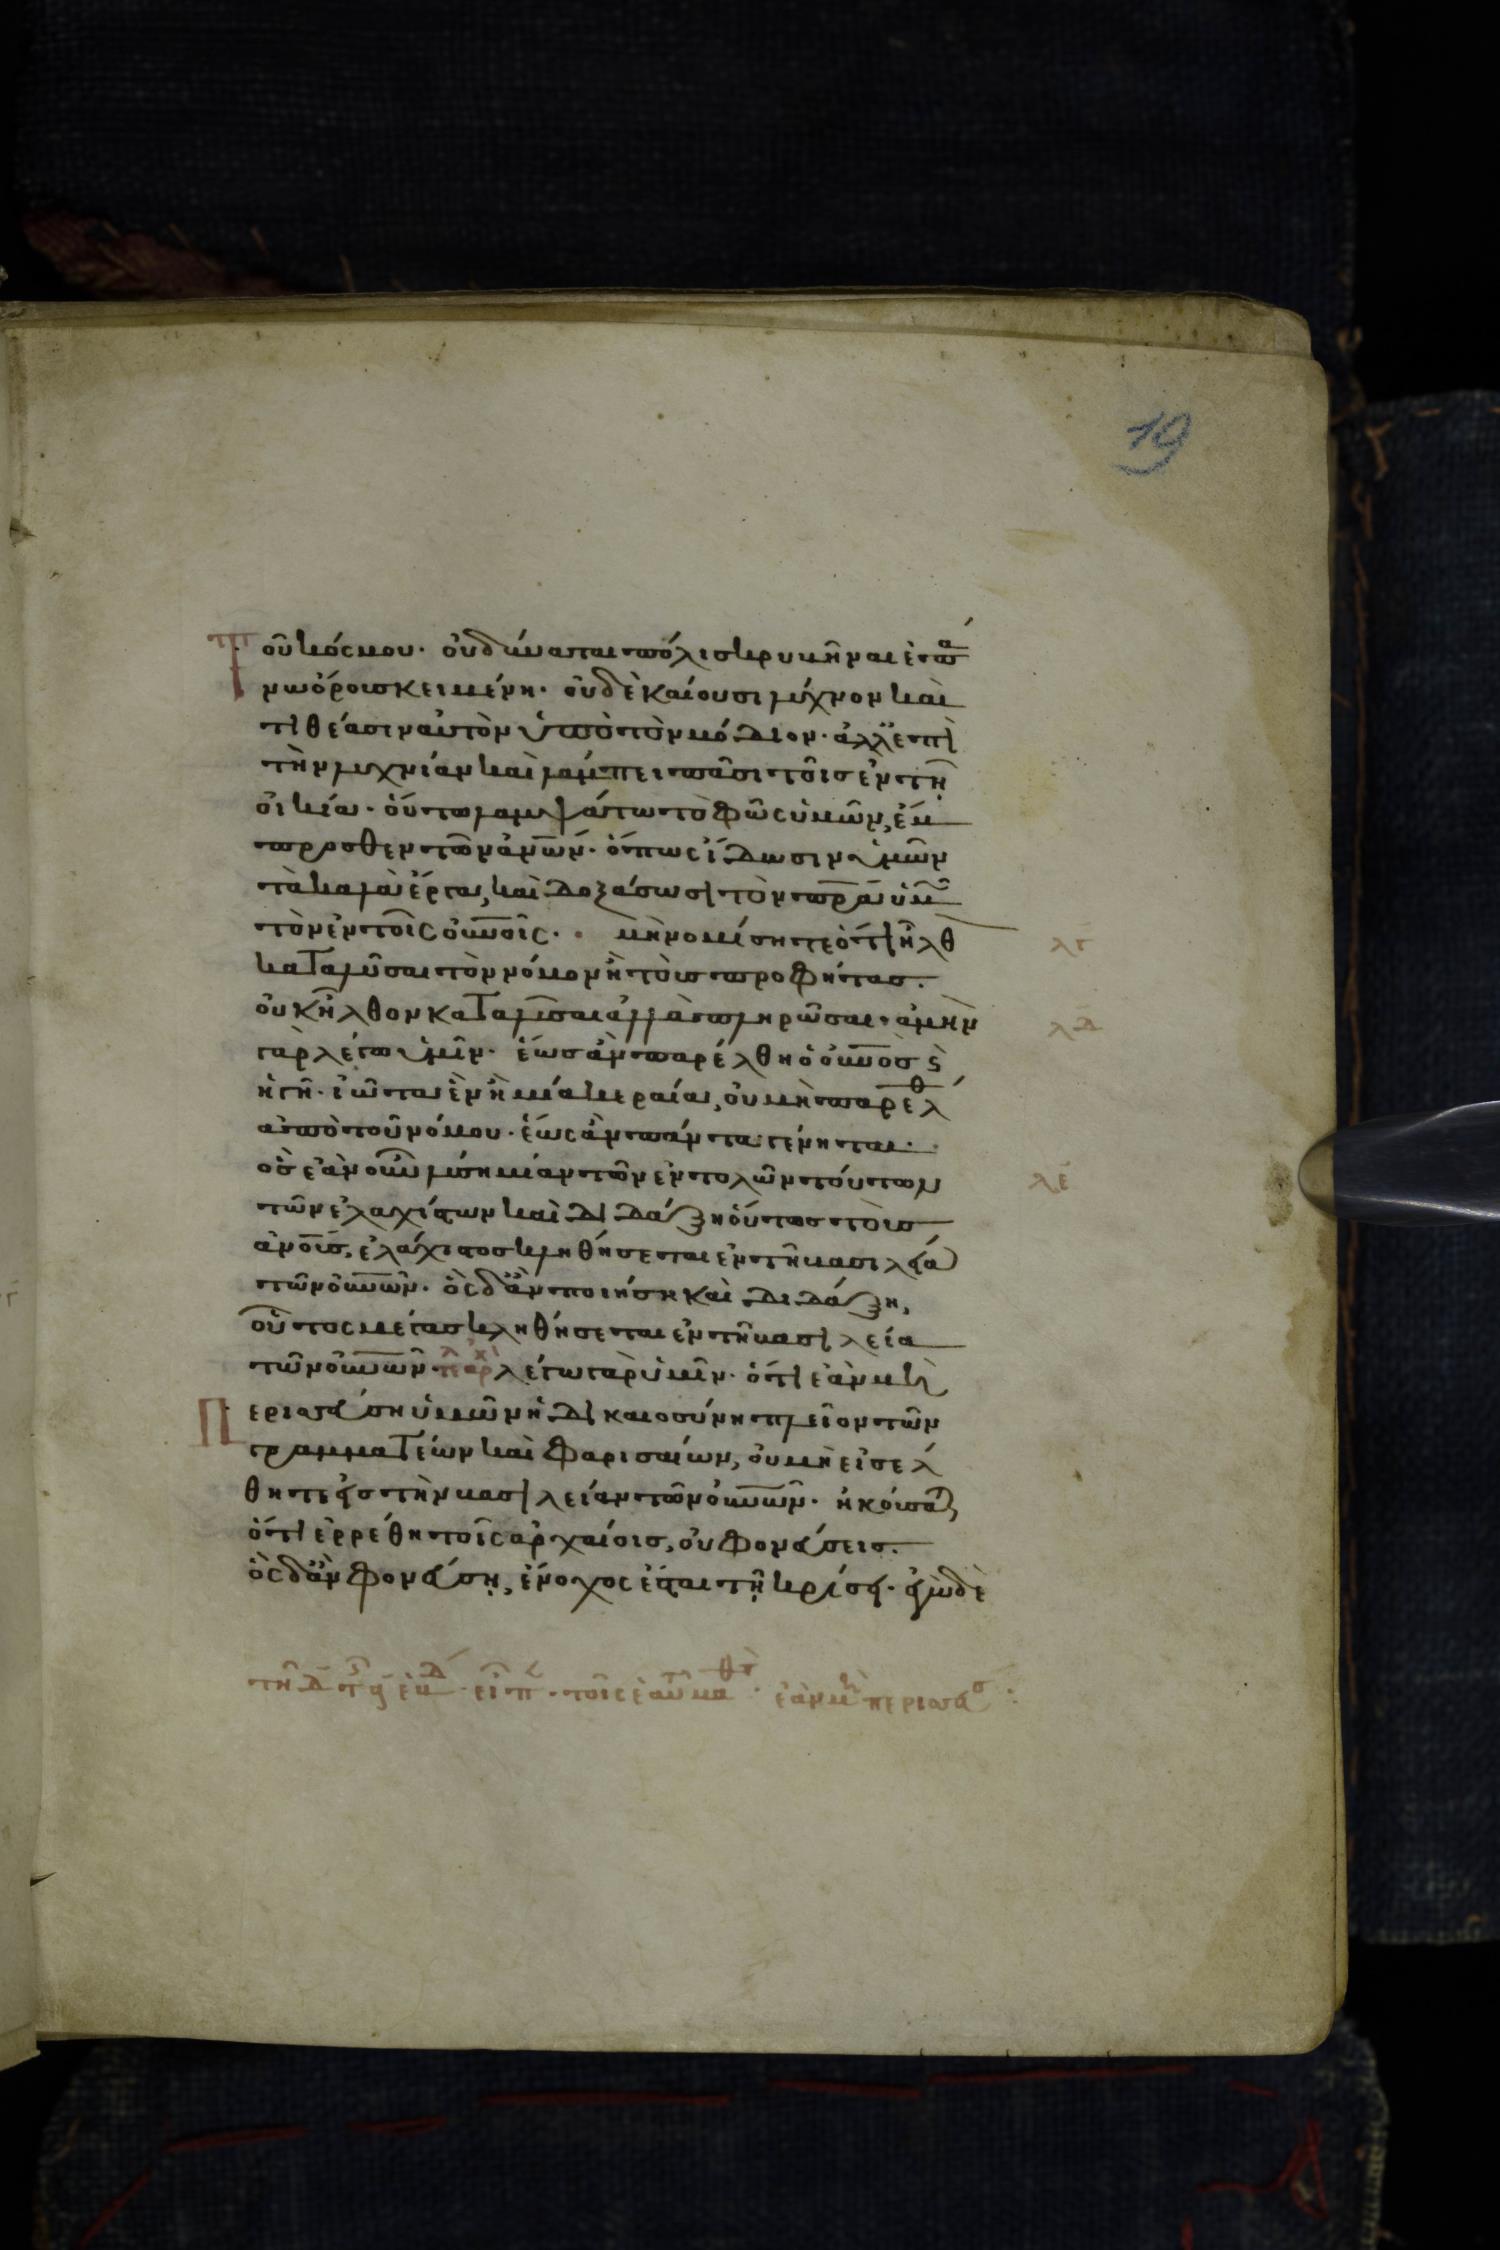 19
Τοῦ κόσμου· οὐ δύναται πόλις κρυβῆναι ἐπά
νω ὄρους κειμένη· οὐδὲ καίουσι λύχνον καὶ
τιθέασιν αὐτὸν ὑπὸ τὸν μόδιον· ἀλλ' ἐπὶ
τὴν λυχνίαν καὶ λάμπει πᾶσι τοῖς ἐν τῇ
οἰκία· οὕτω λαμψάτω τὸ φῶς ὑμῶν, ἔμ
προσθεν τῶν ἀνων· ὅπως ἴδωσιν ὑμῶν
τὰ καλὰ ἔργα, καὶ δοξάσωσι τὸν πρα ὑμ
τὸν ἐν τοῖς οὐνοῖς· μὴ νομίσητε ὅτι ἦλθ
λγ
καταλῦσαι τὸν νόμον ἢ τοὺς προφήτας·
οὐκ ἦλθον καταλῦσαι ἀλλὰ πληρῶσαι· ἀμὴν
λδ
γὰρ λέγω ὑμῖν· ἕως ἂν παρέλθη ὁ οὐνὸς ϗ
ἡ γῆ· ἰῶτα ἓν ἢ μία κεραία, οὐ μὴ παρέλθ
ἀπὸ τοῦ νόμου· ἕως ἂν πάντα γένηται·
ὃς ἐὰν οὖν λύση μίαν τῶν ἐντολῶν τούτων
λε
τῶν ἐλαχίστων καὶ διδάξη οὕτως τοὺς
ἀνοῦς, ἐλάχιστος κληθήσεται ἐν τῆ βασιλεία
τῶν οὐνῶν· ὃς δ' ἂν ποιήση καὶ διδάξη,
οὗτος μέγας κληθήσεται ἐν τῆ βασιλεία
τῶν οὐνῶν· λέγω γὰρ ὑμῖν· ὅτι ἐὰν μὴ
Περισσεύση ὑμῶν ἡ δικαιοσύνη πλεῖον τῶν
γραμματέων καὶ φαρισαίων, οὐ μὴ εἰσέλ
θητε εἰς τὴν βασιλείαν τῶν οὐνῶν· ἠκούσατε
ὅτι ἐρρέθη τοῖς ἀρχαίοις, οὐ φονεύσεις·
ὃς δ' ἂν φονεύση, ἔνοχος ἔσται τῇ κρίσει· ἐγὼ δὲ
ἐὰν μὴ περισσεύσ